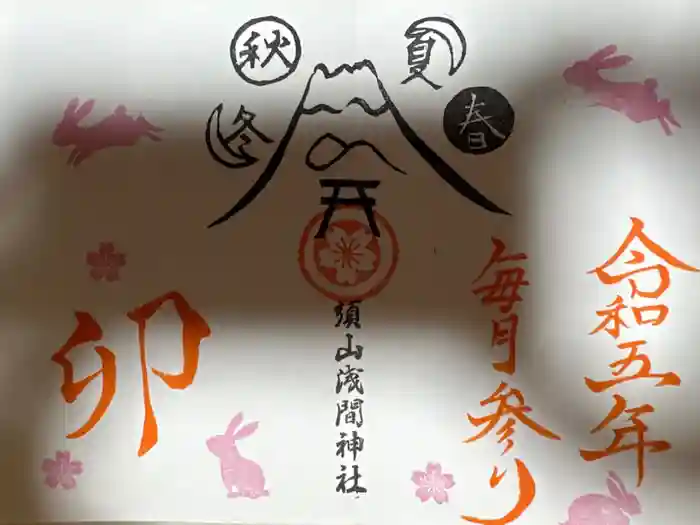 令和五年
毎月参り
春
夏
秋
冬
須山浅間神社
卯